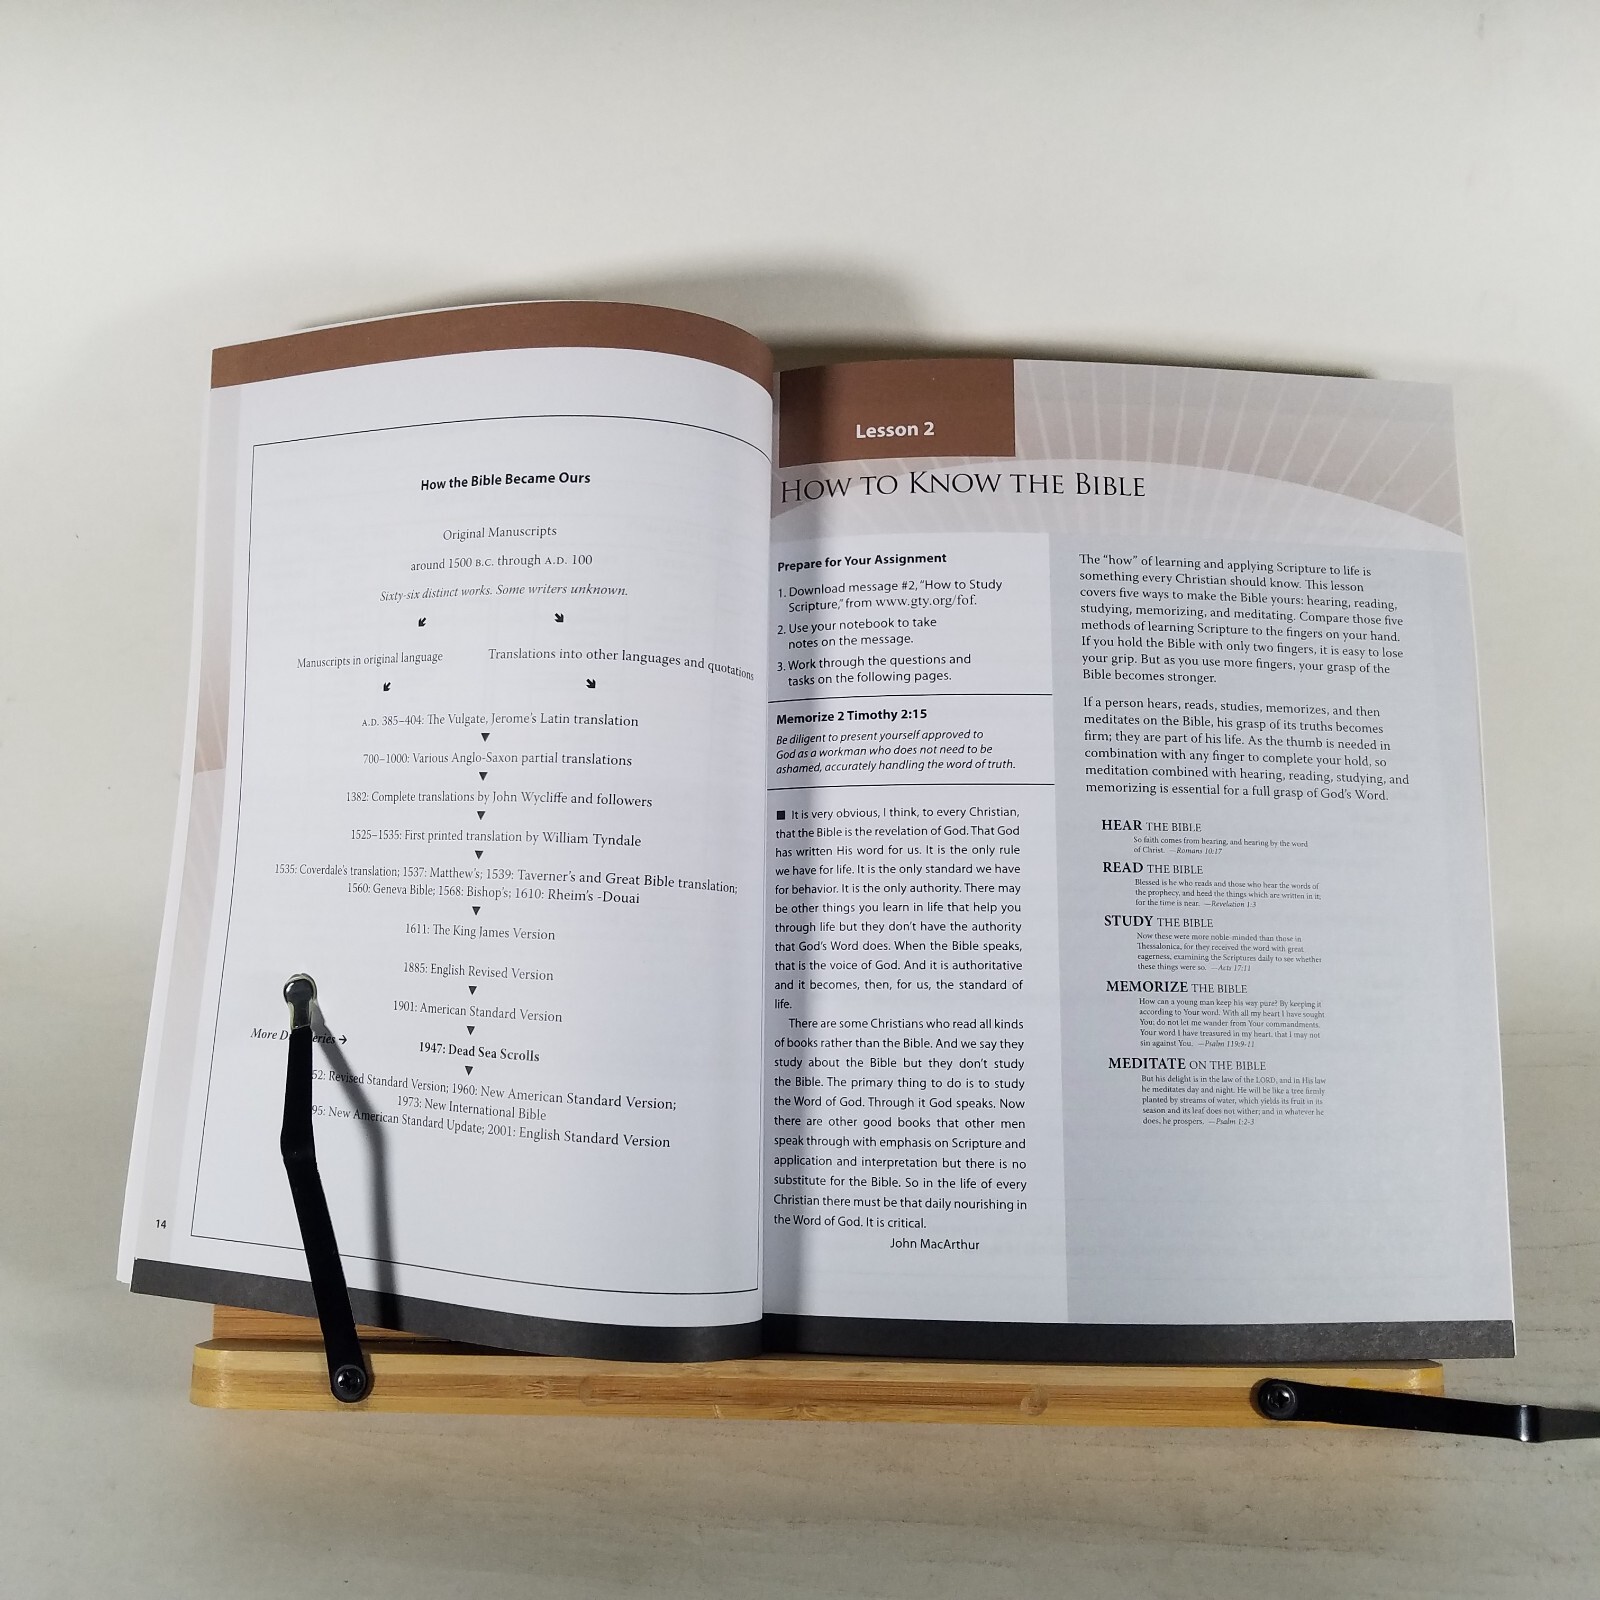 How the Bible Became Ours
Original Manuscripts
around 1500 B.C. through A.D. 100
Sixty-six distinct works. Some writers unknown.
Manuscripts in original language
Translations into other languages and quotations
A.D. 385–404: The Vulgate, Jerome's Latin translation
700–1000: Various Anglo-Saxon partial translations
1382: Complete translations by John Wycliffe and followers
1525–1535: First printed translation by William Tyndale
1535: Coverdale's translation; 1537: Matthew's; 1539: Taverner's and Great Bible translation;
1560: Geneva Bible; 1568: Bishop's; 1610: Rheim's -Douai
1611: The King James Version
1885: English Revised Version
1901: American Standard Version
More →
1947: Dead Sea Scrolls
52: Revised Standard Version; 1960: New American Standard Version;
1973: New International Bible
95: New American Standard Update; 2001: English Standard Version
14
Lesson 2
HOW TO KNOW THE BIBLE
Prepare for Your Assignment
1. Download message #2, "How to Study
Scripture," from www.gty.org/fof.
2. Use your notebook to take
notes on the message.
3. Work through the questions and
tasks on the following pages.
Memorize 2 Timothy 2:15
Be diligent to present yourself approved to
God as a workman who does not need to be
ashamed, accurately handling the word of truth.
■ It is very obvious, I think, to every Christian,
that the Bible is the revelation of God. That God
has written His word for us. It is the only rule
we have for life. It is the only standard we have
for behavior. It is the only authority. There may
be other things you learn in life that help you
through life but they don't have the authority
that God's Word does. When the Bible speaks,
that is the voice of God. And it is authoritative
and it becomes, then, for us, the standard of
life.
There are some Christians who read all kinds
of books rather than the Bible. And we say they
study about the Bible but they don't study
the Bible. The primary thing to do is to study
the Word of God. Through it God speaks. Now
there are other good books that other men
speak through with emphasis on Scripture and
application and interpretation but there is no
substitute for the Bible. So in the life of every
Christian there must be that daily nourishing in
the Word of God. It is critical.
John MacArthur
The "how" of learning and applying Scripture to life is
something every Christian should know. This lesson
covers five ways to make the Bible yours: hearing, reading,
studying, memorizing, and meditating. Compare those five
methods of learning Scripture to the fingers on your hand.
If you hold the Bible with only two fingers, it is easy to lose
your grip. But as you use more fingers, your grasp of the
Bible becomes stronger.
If a person hears, reads, studies, memorizes, and then
meditates on the Bible, his grasp of its truths becomes
firm; they are part of his life. As the thumb is needed in
combination with any finger to complete your hold, so
meditation combined with hearing, reading, studying, and
memorizing is essential for a full grasp of God's Word.
HEAR THE BIBLE
So faith comes from hearing, and hearing by the word
of Christ. —Romans 10:17
READ THE BIBLE
Blessed is he who reads and those who hear the words of
the prophecy, and heed the things which are written in it;
for the time is near. —Revelation 1:3
STUDY THE BIBLE
Now these were more noble-minded than those in
Thessalonica, for they received the word with great
eagerness, examining the Scriptures daily to see whether
these things were so. —Acts 17:11
MEMORIZE THE BIBLE
How can a young man keep his way pure? By keeping it
according to Your word. With all my heart I have sought
You; do not let me wander from Your commandments.
Your word I have treasured in my heart, that I may not
sin against You. —Psalm 119:9-11
MEDITATE ON THE BIBLE
But his delight is in the law of the LORD, and in His law
he meditates day and night. He will be like a tree firmly
planted by streams of water, which yields its fruit in its
season and its leaf does not wither; and in whatever he
does, he prospers. —Psalm 1:2-3